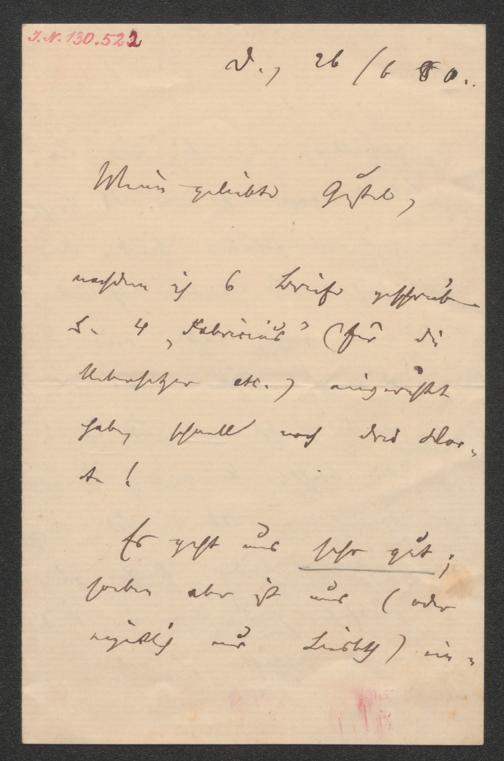 I.N. 130.522
D., 26/6 80.
Mein geliebter Gustel,
nachdem ich 6 Briefe geschrieben
u. 4 „Fabricius" (für die
Uebersetzer etc.) eingewickelt
habe, schnell noch drei Wor-
te!
Es geht uns sehr gut;
soeben aber ist uns (oder
eigentlich nur Lisbeth) ein